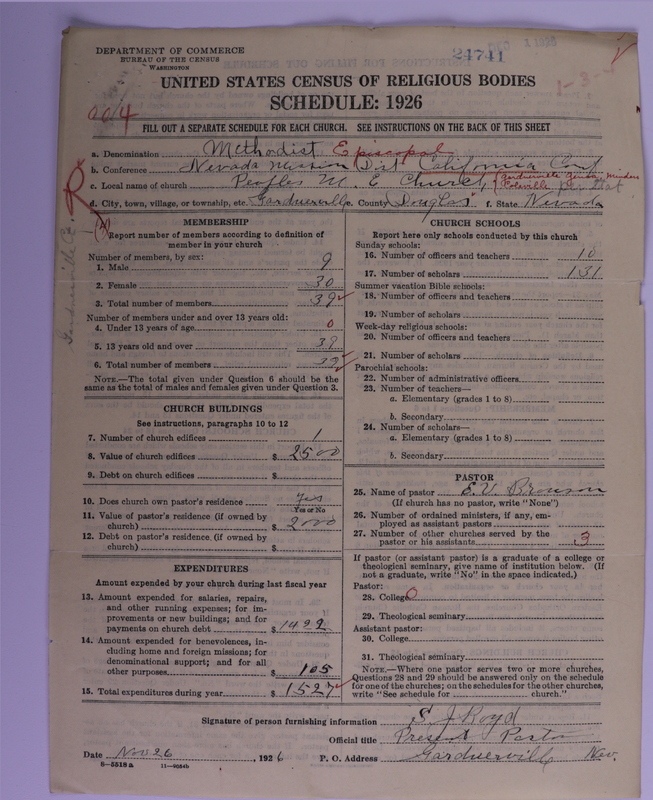 DEPARTMENT OF COMMERCE
BUREAU OF THE CENSUS
WASHINGTON
24741
UNITED STATES CENSUS OF RELIGIOUS BODIES
SCHEDULE: 1926
FILL OUT A SEPARATE SCHEDULE FOR EACH CHURCH. SEE INSTRUCTIONS ON THE BACK OF THIS SHEET
a. Denomination Methodist Episcopal
b. Conference Nevada Mission Dist California Conf
c. Local name of church Peoples M. E Church
d. City, town, village, or township, etc. Gardnerville e. County Douglas f. State Nevada
MEMBERSHIP
Report number of members according to definition of
member in your church
Number of members, by sex:
1. Male 9
2. Female 30
3. Total number of members 39
Number of members under and over 13 years old:
4. Under 13 years of age 0
5. 13 years old and over 39
6. Total number of members 39
NOTE.—The total given under Question 6 should be the
same as the total of males and females given under Question 3.
CHURCH BUILDINGS
See instructions, paragraphs 10 to 12
7. Number of church edifices 1
8. Value of church edifices $ 2500
9. Debt on church edifices $
10. Does church own pastor's residence Yes
Yes or No
11. Value of pastor's residence (if owned by
church) $ 2000
12. Debt on pastor's residence (if owned by
church) $
EXPENDITURES
Amount expended by your church during last fiscal year
13. Amount expended for salaries, repairs,
and other running expenses; for im-
provements or new buildings; and for
payments on church debt $ 1422
14. Amount expended for benevolences, in-
cluding home and foreign missions; for
denominational support; and for all
other purposes $ 105
15. Total expenditures during year $ 1527
CHURCH SCHOOLS
Report here only schools conducted by this church
Sunday schools:
16. Number of officers and teachers 10
17. Number of scholars 131
Summer vacation Bible schools:
18. Number of officers and teachers
19. Number of scholars
Week-day religious schools:
20. Number of officers and teachers
21. Number of scholars
Parochial schools:
22. Number of administrative officers
23. Number of teachers—
a. Elementary (grades 1 to 8)
b. Secondary
24. Number of scholars—
a. Elementary (grades 1 to 8)
b. Secondary
PASTOR
25. Name of pastor E. V. Bronson
(If church has no pastor, write "None")
26. Number of ordained ministers, if any, em-
ployed as assistant pastors
27. Number of other churches served by the
pastor or his assistants 3
If pastor (or assistant pastor) is a graduate of a college or
theological seminary, give name of institution below. (If
not a graduate, write "No" in the space indicated.)
Pastor:
28. College 0
29. Theological seminary
Assistant pastor:
30. College
31. Theological seminary
NOTE.—Where one pastor serves two or more churches,
Questions 28 and 29 should be answered only on the schedule
for one of the churches; on the schedules for the other churches,
write "See schedule for church."
Signature of person furnishing information S. J. Royd
Official title Present Pastor
Date Nov 26, 1926 P. O. Address Gardnerville Nev.
8-5518a 11-9064b